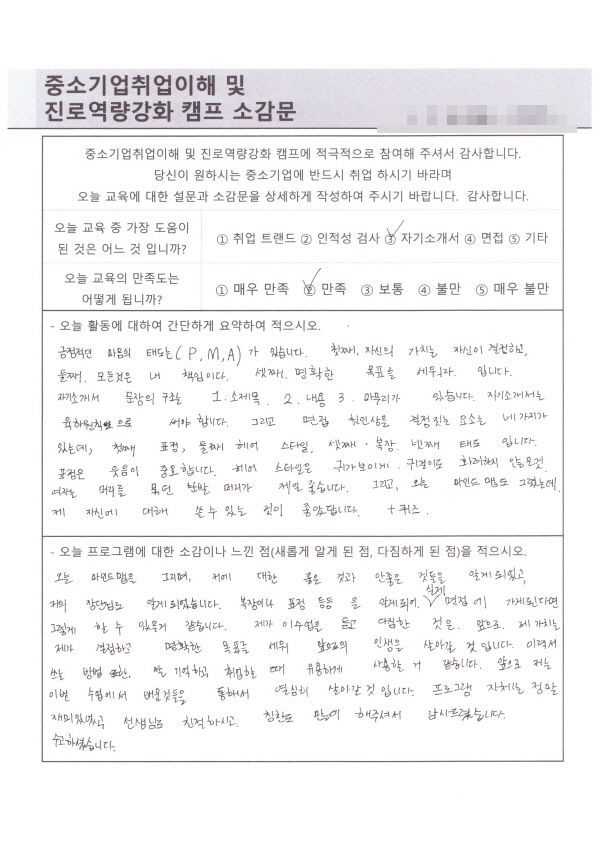 중소기업취업이해 및
진로역량강화 캠프 소감문
중소기업취업이해 및 진로역량강화 캠프에 적극적으로 참여해 주셔서 감사합니다.
당신이 원하시는 중소기업에 반드시 취업 하시기 바라며
오늘 교육에 대한 설문과 소감문을 상세하게 작성하여 주시기 바랍니다. 감사합니다.
오늘 교육 중 가장 도움이
된 것은 어느 것 입니까?
① 취업 트랜드 ② 인적성 검사 ③ 자기소개서 ④ 면접 ⑤ 기타
오늘 교육의 만족도는
어떻게 됩니까?
① 매우 만족 ② 만족 ③ 보통 ④ 불만 ⑤ 매우 불만
- 오늘 활동에 대하여 간단하게 요약하여 적으시오.
긍정적인 마음의 태도는 (P, M, A) 가 있습니다. 첫째, 자신의 가치는 자신이 결정하고,
둘째, 모든것은 내 책임이다. 셋째, 명확한 목표를 세우자. 입니다.
자기소개서 문장의 구조는 1. 소제목 2. 내용 3. 마무리가 있습니다. 자기소개서는
육하원칙으로 써야 합니다. 그리고 면접 첫인상을 결정 짓는 요소는 네가지가
있는데, 첫째 표정, 둘째 헤어 스타일, 셋째 복장. 넷째 태도 입니다.
표정은 웃음이 중요합니다. 헤어 스타일은 귀가보이게. 귀걸이도 화려하지 않은것.
여자는 머리를 묶던 단발 머리가 제일 좋습니다. 그리고, 오늘 마인드 맵도 그렸는데,
제 자신에 대해 쓸 수 있는 것이 좋았답니다. + 퀴즈.
- 오늘 프로그램에 대한 소감이나 느낀 점(새롭게 알게 된 점, 다짐하게 된 점)을 적으시오.
오늘 마인드맵을 그리며, 저에 대한 좋은 것과 안좋은 것들을 알게 되었고,
저의 장단점도 알게 되었습니다. 복장이나 표정 등등 을 알게되어. 실제 면접에 가게된다면
그렇게 할 수 있을거 같습니다. 제가 이 수업을 듣고 다짐한 것은. 앞으로. 제 가치는
제가 결정하고 명확한 목표를 세워 앞으로의 인생을 살아갈 것 입니다. 이력서
쓰는 방법 또한. 잘 기억하고 취업할 때 유용하게 사용할 거 같습니다. 앞으로 저는
이번 수업에서 배운것들을 통해서 열심히 살아갈것 입니다. 프로그램 자체는 정말
재미있었고 선생님도 친절하시고. 칭찬도 많이 해주셔서 감사드렸습니다.
수고하셨습니다.